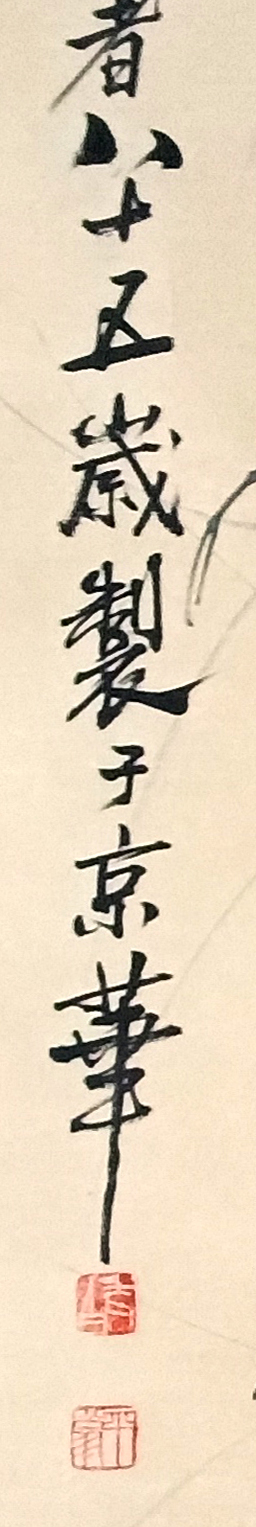 者八十五歲製于京華